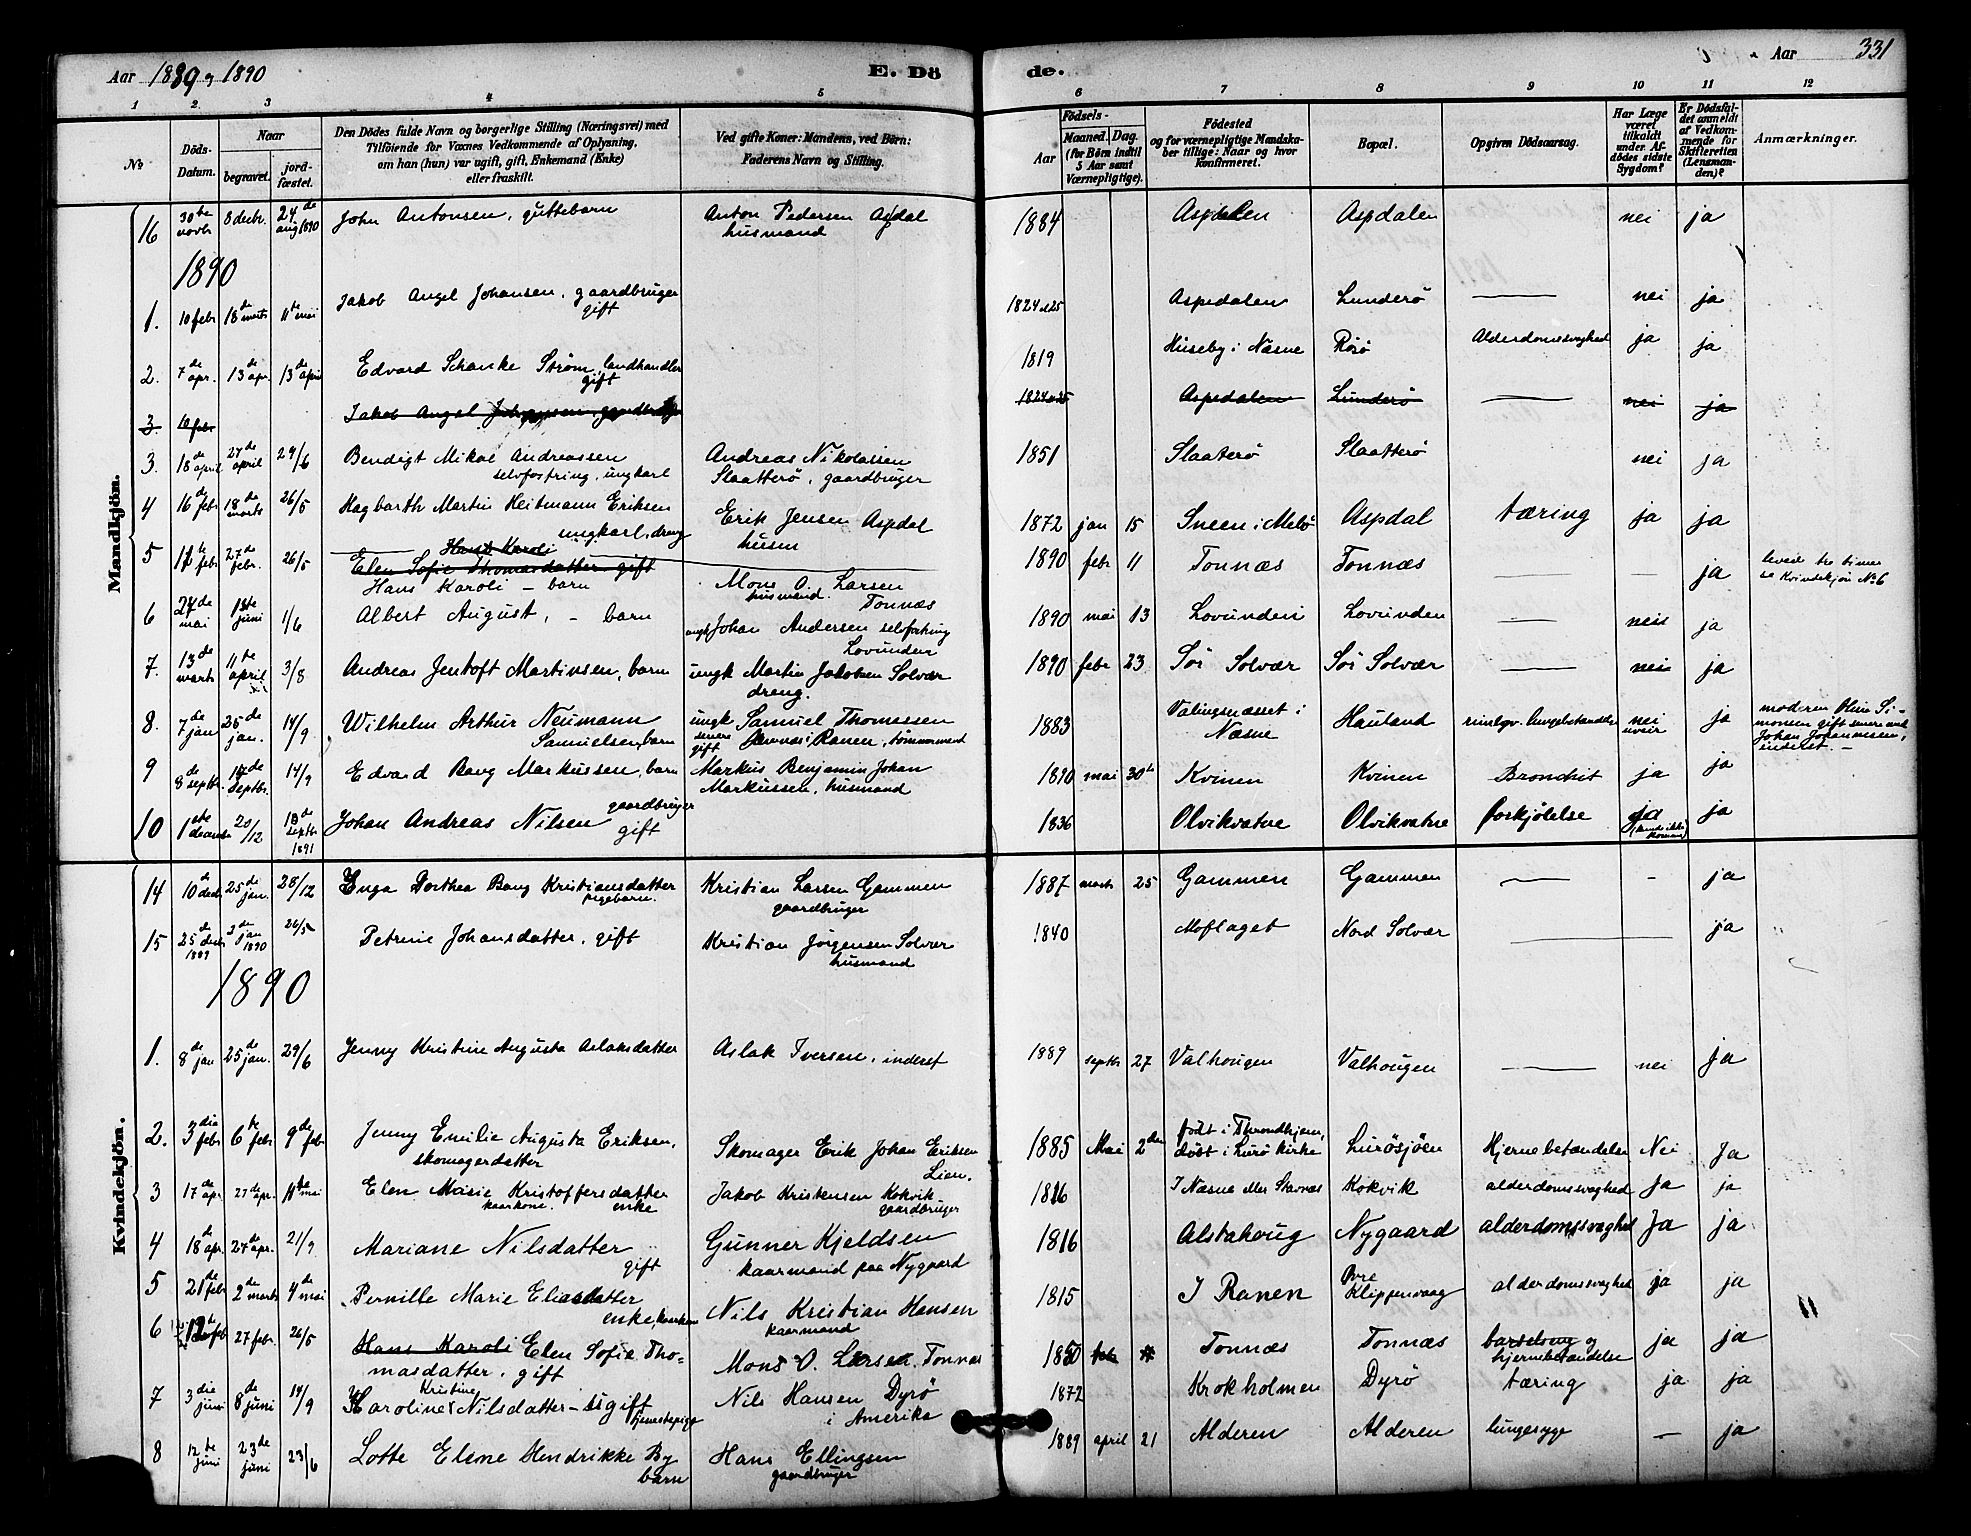 Aar 1889 og 1890
E. Dö
de.
Aar
331
1 2. 3 4 5 6 7 8 9 10 11 12
No
Döds-Datum.
Naar
begravet.
jord-fæstet.
Den Dödes fulde Navn og borgerlige Stilling (Næringsvei) med
Tilföiende for Voxnes Vedkommende af Oplysning,
om han (hun) var ugift, gift, Enkemand (Enke)
eller fraskilt.
Ved gifte Koner: Mandens, ved Börn:
Faderens Navn og Stilling.
Födsels-
Aar
Maaned. Dag.
(for Börn indtil
5 Aar samt
Værnepligtige).
Födested
og for værnepligtige Mandska-
ber tillige: Naar og hvor
konfirmeret.
Bopæl.
Opgiven Dödsaarsag.
Har Læge
været
tilkaldt
under Af-
dödes sidste
Sygdom?
Er Dödsfal-
det anmeldt
af Vedkom-
mende for
Skifteretten
(Lensman-
den)?
Anmærkninger.
Mandkjön.
16 30te novbr 8 decbr. 24de aug 1890 John Antonsen, guttebarn Anton Pedersen Aspdal husmand 1884 Aspdalen Aspdalen nei ja
1890
1. 10 febr 18de marts 11te mai Jakob Angel Johansen, gaardbruger gift 1824 el 25 Aspedalen Lunderö — nei ja
2. 7de apr. 13de apr. 13de april Edvard Schanke Ström, landhandler gift 1819 Huseby i Næsne Rösö Alderdomssvaghed ja ja
3. 10 febr Jakob Angel 1824 el 25 Aspedalen Lunderö — nei ja
3. 18de april 27de april 29/6 Bendigt Mikal Andreassen selvfostring, ungkarl Andreas Nikolaisen Slaatterö, gaardbruger 1851 Slaaterö Slaatterö nei ja
4 16de febr 18de marts 26/5 Hagbarth Martin Heitmann Eriksen ungkarl, dreng Erik Jensen Aspdal husm 1872 jan 15 Sneen i Melö Aspdal tæring ja ja
5 11te febr 27de febr. 26/5 Hans Karoli
Elen Sofie Thomasdatter gift
Hans Karoli – barn Mons O. Larsen husmand. Tonnæs 1890 febr 11 Tonnæs Tonnæs — — ja levede tre timer se Kvindekjön No 6
6 24de mai 1/6 Albert August, – barn ungk Johan Andersen Lovunden 1890 mai 13 Lovunden Lovunden — nei ja
7. 13de marts 11te april 3/8 Andreas Jentoft Martinsen, barn ungk Martin Jakobsen Solvær dreng. 1890 febr 23 Sör Solvær Sör Solvær — nei ja
8. 7de jan 25de jan. 14/9 Wilhelm Arthur Neumann Samuelsen, barn ungk Samuel Thomassen senere gift Ranen, 1883 Valingsnæsset i Næsne Hauland nei ja moderen Oline Si-
monsen gift senere med
Johan Johannesen,
inderst. –
9 8de septbr. septbr. 14/9 Edvard Bang Markussen, barn Markus Benjamin Johan Markussen, husmand 1890 mai 30te Kvinen Kvinen Bronchit ja ja
10 1ste 20/12 18de septbr 1891 Johan Andreas Nilsen gaardbruger gift 1836 Olvikvatne Olvikvatne Forkjölelse ja (kunde ikke komme) ja
Kvindekjön.
14 10de decbr 25de jan. 28/12 Enga Dorthea Bang Kristiansdatter pigebarn. Kristian Larsen Gammen gaardbruger 1887 marts 25 Gammen Gammen — – ja
15 25de decbr 1889 2den jan 1890 26/5 Petrine Johansdatter, gift Kristian Jörgensen Solvær husmand 1840 Moflaget Nord Solvær — ja
1890
1. 8de jan 25de jan. 29/6 Jenny Kristine Augusta Aslaksdatter Aslak Iversen, inderst 1889 septbr 27 Valhougen Valhougen — nei ja
2. 3die febr 6te febr 9de febr Jenny Emilie Augusta Eriksen, skomagerdatter Skomager Erik Johan Eriksen Lien. 1885 Mai 2den födt i Throndhjem, döbt i Lurö kirke Lurösjöen Hjernebetændelse Nei Ja
3 17de apr 27de apr. 11te mai Elen Marie Kristoffersdatter kaarkone. enke Jakob Kristensen Kokvik gaardbruger 1816 I Næsne eller Stavnæs Kokvik alderdomssvaghed Ja ja
4 18de apr. 27de apr. 21/9 Mariane Nilsdatter gift Gunner Kjeldsen kaarmand paa Nygaard 1816 Alstahoug Nygaard alderdomssvaghed Ja ja
5 21de febr 2de marts 4de mai Pernille Marie Eliasdatter enke, Nils Kristian Hansen kaarmand 1815 I Ranen Övre Klippenvaag alderdomssvaghed ja ja
6 12te febr 27 febr. 26/5 Hans Karoli Elen Sofie Tho=
masdatter, gift Mons O. Larsen, Tonnæs 1850 febr Tonnæs Tonnæs barselseng og hjernebetændelse ja ja
7 3die juni 8de juni 14/9 Karoline Kristine Nilsdatter – ugift tjenestepige Nils Hansen Dyrö i Amerika 1872 Krokholmen Dyrö tæring ja ja
8 12te juni 23de juni 23/6 Lotte Elene Hendrikke By barn Hans Ellingsen gaardbruger 1889 april 21 Alderen Alderen lungesyge — ja